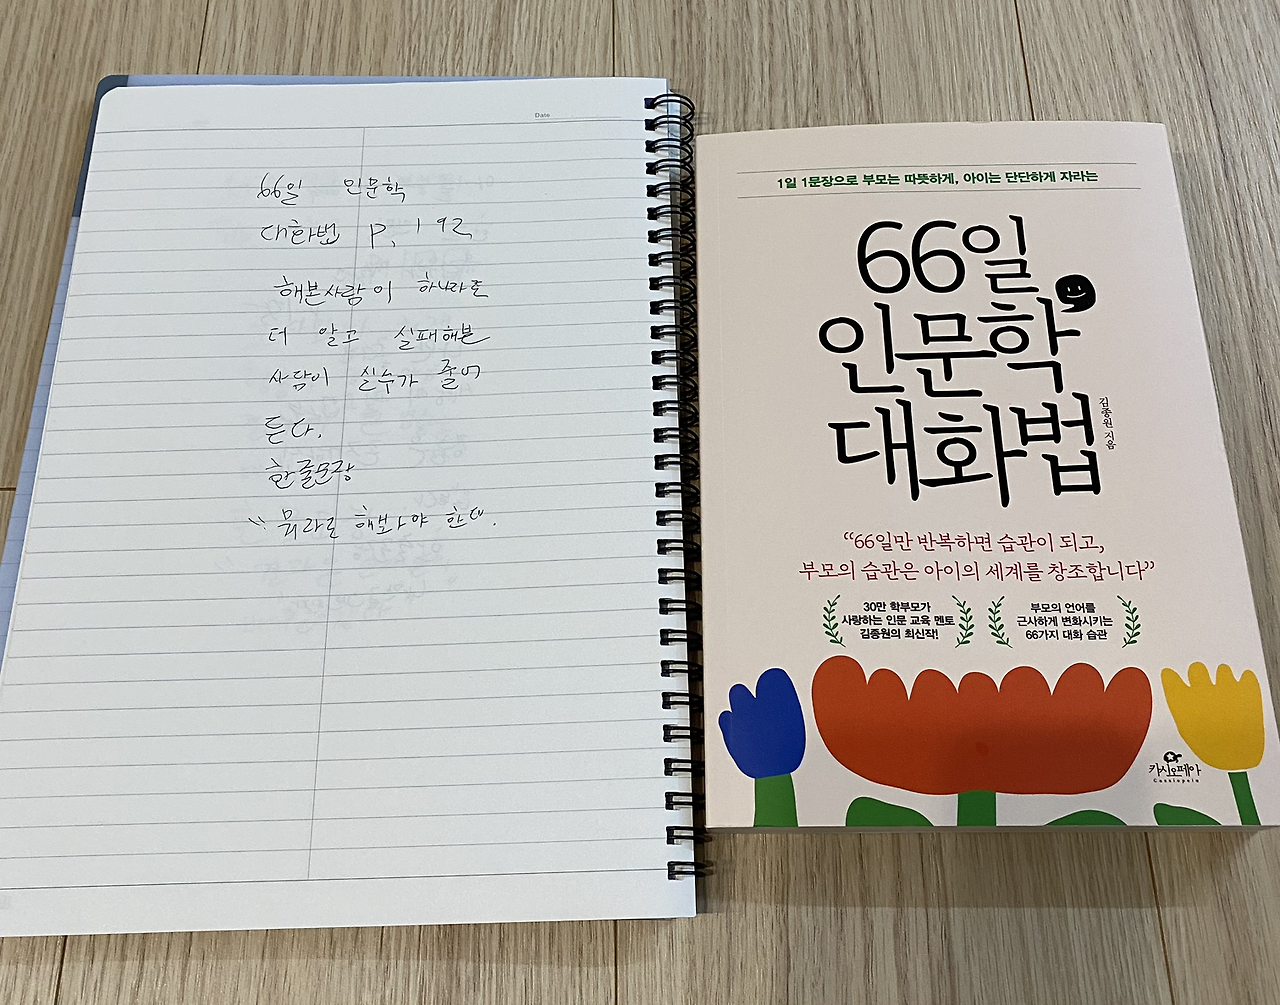 Date
66일 인문학
대화법 P. 192
해본사람이 하나라도
더 알고 실패해본
사람이 실수가 줄어
든다.
한글모랑
뭐라도 해봐야 한다.
1일 1문장으로 부모는 따뜻하게, 아이는 단단하게 자라는
66일
인문학
대화법
김종원 지음
“66일만 반복하면 습관이 되고,
부모의 습관은 아이의 세계를 창조합니다”
30만 학부모가
사랑하는 인문 교육 멘토
김종원의 최신작!
부모의 언어를
근사하게 변화시키는
66가지 대화 습관
카시오페아
Cassiopeia